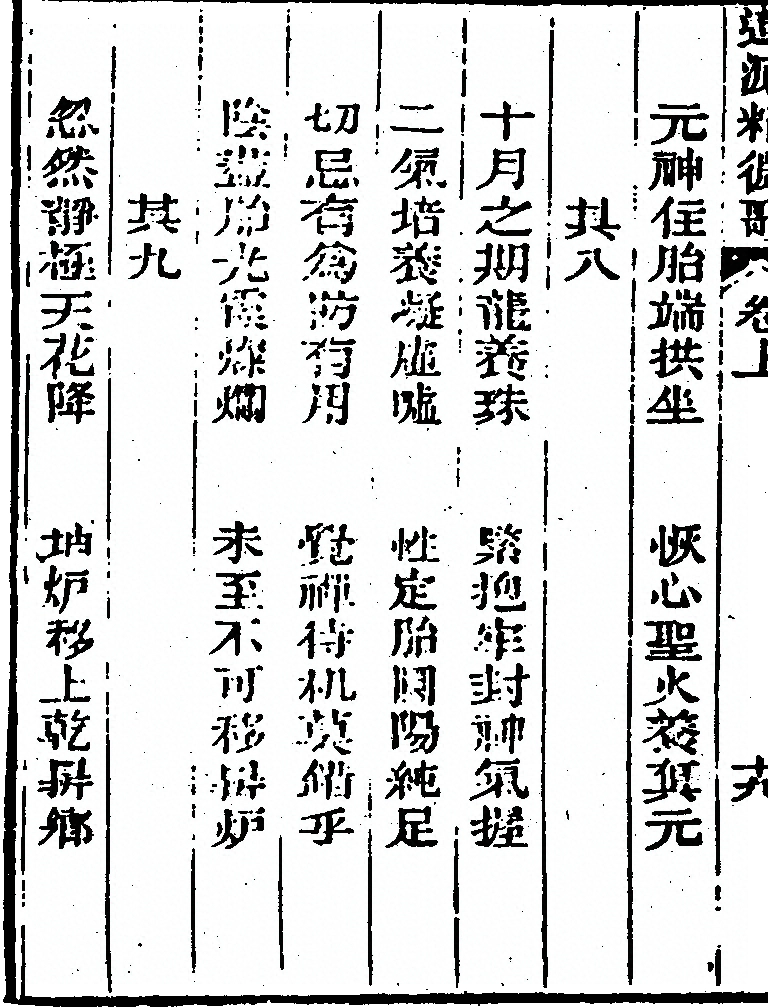 道源精微歌 卷上 十九
元神住胎端拱坐 恢心聖火養真元
其八
十月之期龍養珠 緊抱牢封神氣握
二氣培養凝虛嘘 性定胎圓陽純足
切忌有為防有用 覺禪待机莫錯乎
陰盡胎光僅燦爛 未至不可移昇炉
其九
忽然靜極天花降 坤炉移上乾昇鄉